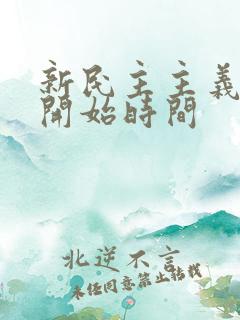 新民主主義
開始時間
北逆不言
未經同意禁止轉載